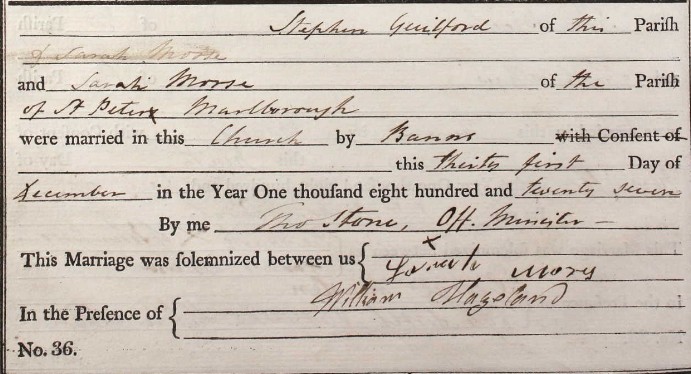 Stephen Guilford of this Parish
& Sarah Morse
and Sarah Morse of the Parish
of St Peters Marlborough
were married in this Church by Banns with Consent of
this thirty first Day of
December in the Year One thousand eight hundred and twenty seven
By me Tho Stone, Off. Minister
This Marriage was solemnized between us { x
Sarah Mors
In the Presence of { William
No. 36.